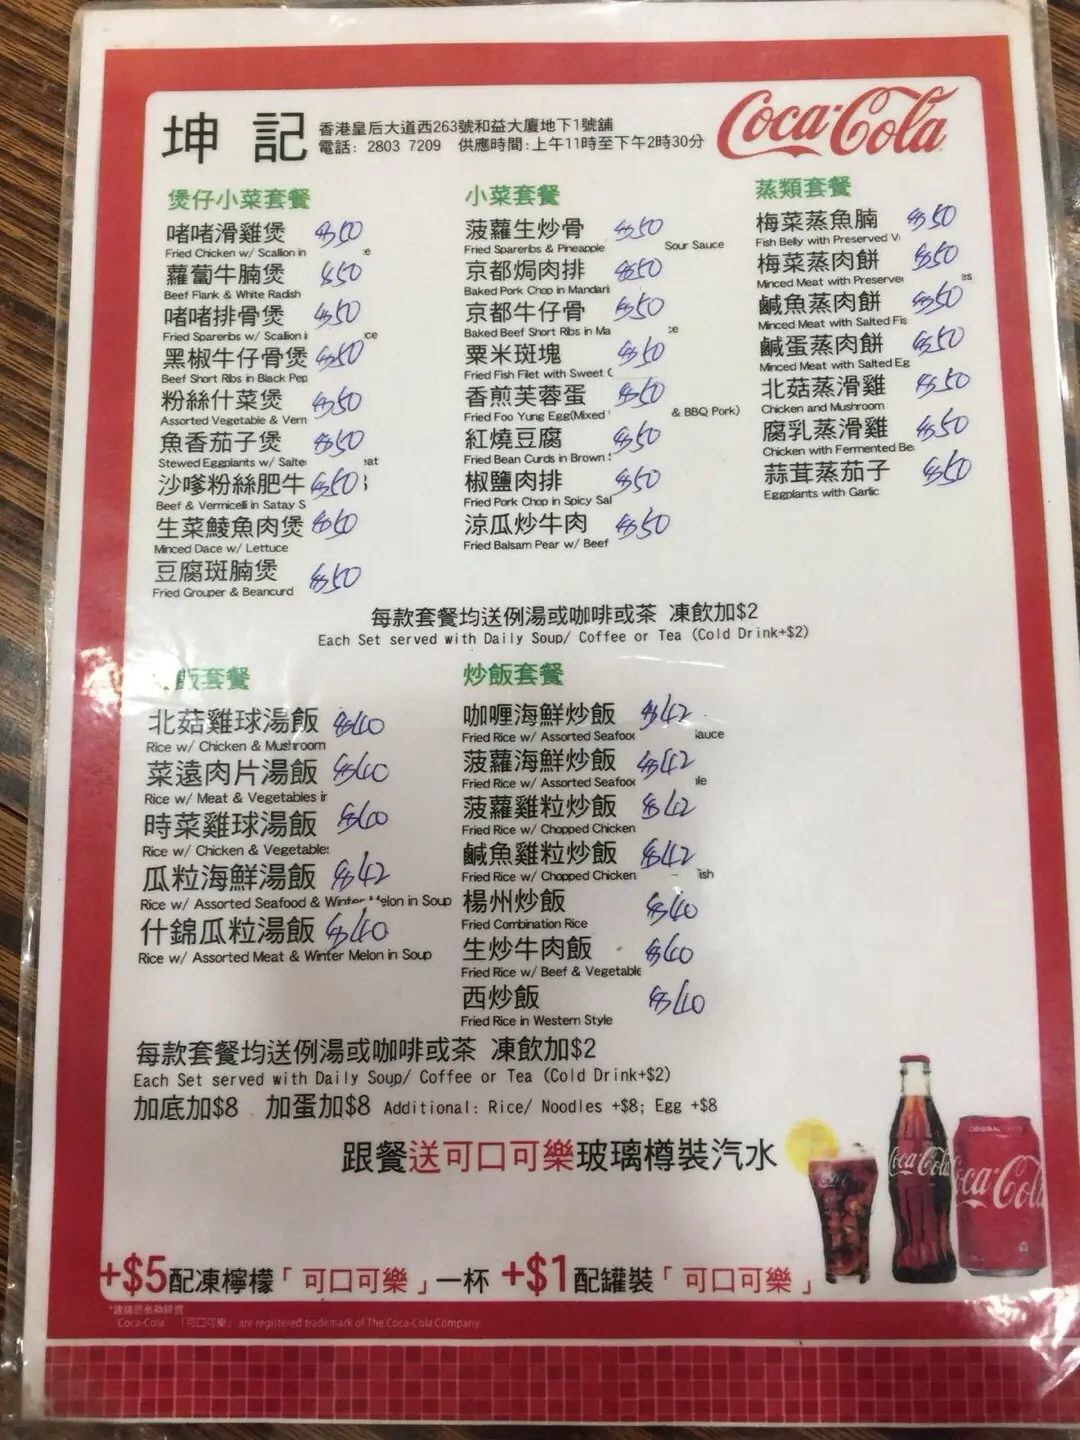 坤記
香港皇后大道西263號和益大廈地下1號舖
電話: 2803 7209 供應時間:上午11時至下午2時30分
Coca-Cola
煲仔小菜套餐
啫啫滑雞煲 $50
Fried Chicken w/ Scallion in
蘿蔔牛腩煲 $50
Beef Flank & White Radish
啫啫排骨煲 $50
Fried Spareribs w/ Scallion i
黑椒牛仔骨煲 $50
Beef Short Ribs in Black Pep
粉絲什菜煲 $50
Assorted Vegetable & Verm
魚香茄子煲 $50
Stewed Eggplants w/ Salte
沙嗲粉絲肥牛 $50
Beef & Vermicelli in Satay S
生菜鯪魚肉煲 $50
Minced Dace w/ Lettuce
豆腐斑腩煲 $50
Fried Grouper & Beancurd
小菜套餐
菠蘿生炒骨 $50
Fried Spareribs & Pineapple Sour Sauce
京都焗肉排 $50
Baked Pork Chop in Mandari
京都牛仔骨 $50
Baked Beef Short Ribs in Ma
粟米斑塊 $50
Fried Fish Filet with Sweet C
香煎芙蓉蛋 $50
Fried Foo Yung Egg(Mixed & BBQ Pork)
紅燒豆腐 $50
Fried Bean Curds in Brown S
椒鹽肉排 $50
Fried Pork Chop in Spicy Sal
涼瓜炒牛肉 $50
Fried Balsam Pear w/ Beef
蒸類套餐
梅菜蒸魚腩 $50
Fish Belly with Preserved V
梅菜蒸肉餅 $50
Minced Meat with Preserve
鹹魚蒸肉餅 $50
Minced Meat with Salted Fis
鹹蛋蒸肉餅 $50
Minced Meat with Salted Eg
北菇蒸滑雞 $50
Chicken and Mushroom
腐乳蒸滑雞 $50
Chicken with Fermented Be
蒜茸蒸茄子 $50
Eggplants with Garlic
每款套餐均送例湯或咖啡或茶 凍飲加$2
Each Set served with Daily Soup/ Coffee or Tea (Cold Drink+$2)
飯套餐
北菇雞球湯飯 $40
Rice w/ Chicken & Mushroom
菜遠肉片湯飯 $40
Rice w/ Meat & Vegetables ir
時菜雞球湯飯 $40
Rice w/ Chicken & Vegetables
瓜粒海鮮湯飯 $42
Rice w/ Assorted Seafood & Winter Melon in Soup
什錦瓜粒湯飯 $40
Rice w/ Assorted Meat & Winter Melon in Soup
炒飯套餐
咖喱海鮮炒飯 $42
Fried Rice w/ Assorted Seafood Sauce
菠蘿海鮮炒飯 $42
Fried Rice w/ Assorted Seafood
菠蘿雞粒炒飯 $42
Fried Rice w/ Chopped Chicken
鹹魚雞粒炒飯 $42
Fried Rice w/ Chopped Chicken
楊州炒飯 $40
Fried Combination Rice
生炒牛肉飯 $40
Fried Rice w/ Beef & Vegetable
西炒飯 $40
Fried Rice in Western Style
每款套餐均送例湯或咖啡或茶 凍飲加$2
Each Set served with Daily Soup/ Coffee or Tea (Cold Drink+$2)
加底加$8 加蛋加$8 Additional: Rice/ Noodles +$8; Egg +$8
跟餐送可口可樂玻璃樽裝汽水
+$5配凍檸檬「可口可樂」一杯 +$1配罐裝「可口可樂」
Coca-Cola 「可口可樂」 are registered trademark of The Coca-Cola Company.